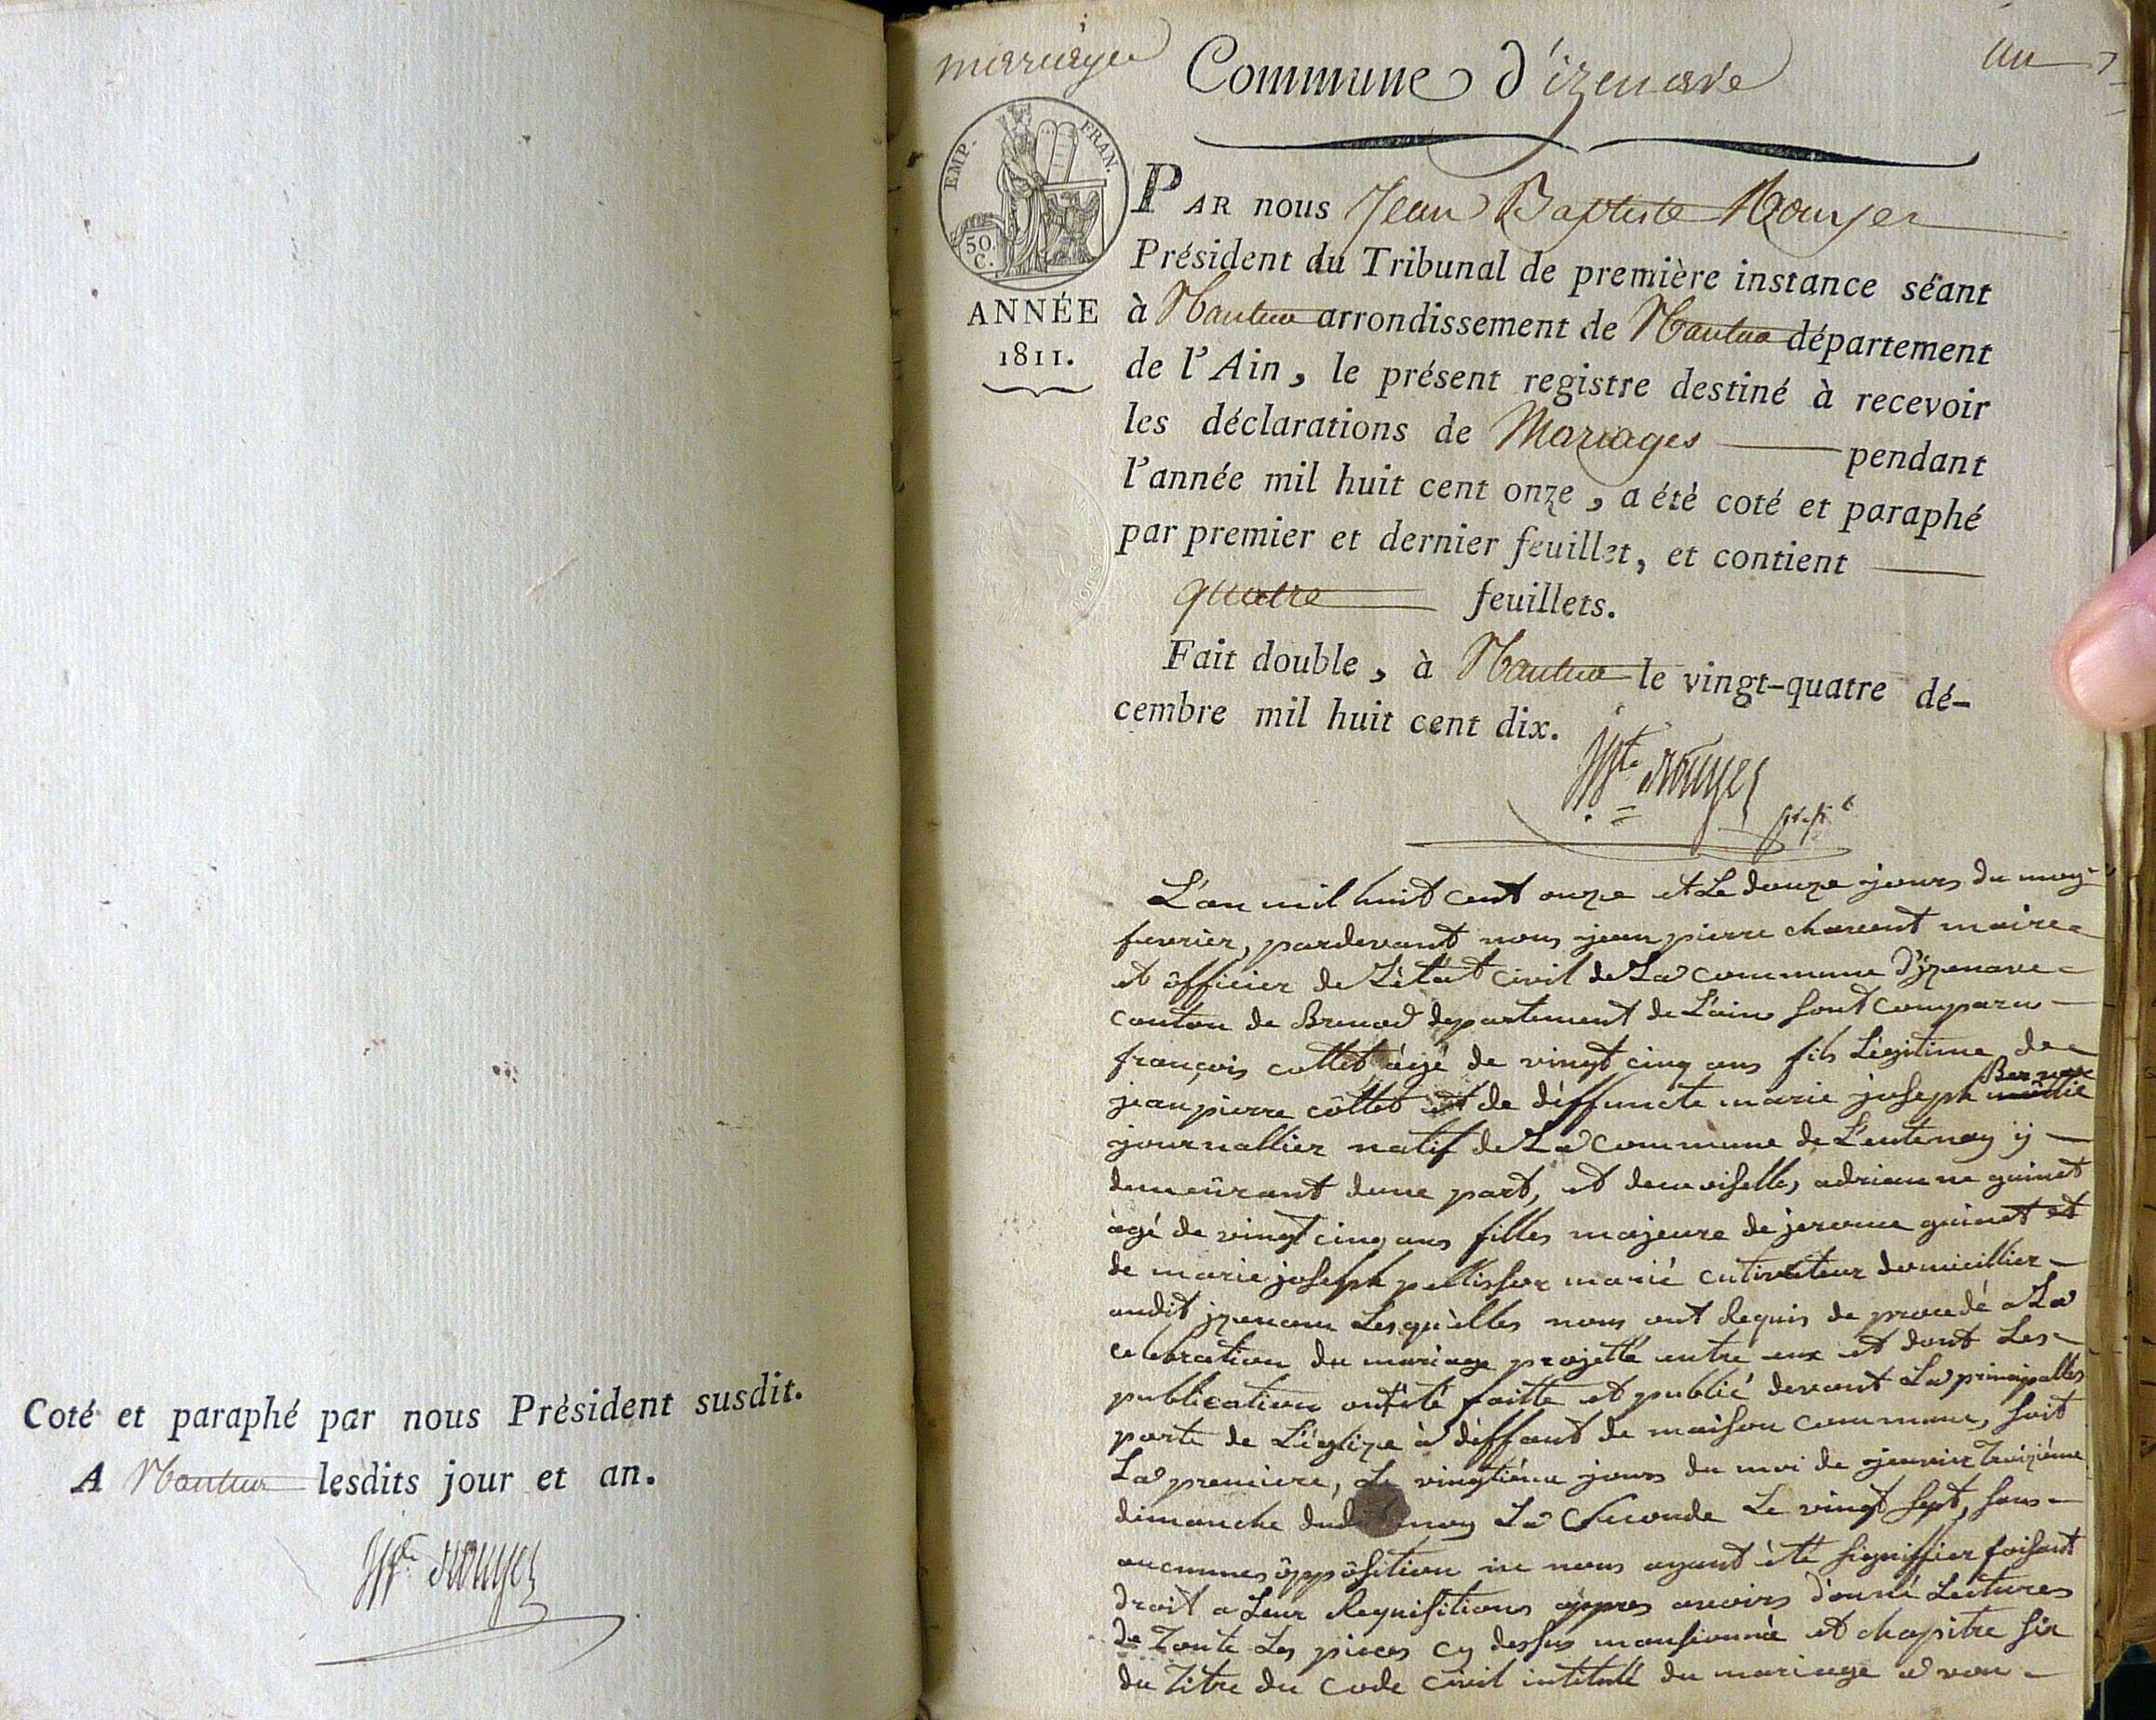 Coté et paraphé par nous Président susdit.
A Nantua lesdits jour et an.
Jn Bte Rouyer
mariages
Commune d'izenave
un
EMP. FRAN.
50. C.
ANNÉE
1811.
PAR nous Jean Baptiste Rouyer
Président du Tribunal de première instance séant
à Nantua arrondissement de Nantua département
de l'Ain, le présent registre destiné à recevoir
les déclarations de Mariages pendant
l'année mil huit cent onze, a été coté et paraphé
par premier et dernier feuillet, et contient
quatre feuillets.
Fait double, à Nantua le vingt-quatre dé-
cembre mil huit cent dix.
Rouyer
L'an mil huit cent onze et Le douze jours du moy
fevrier, pardevant nous jean pierre charvent maire
et ôfficier de L'étât civil de La commune D'izenave
canton de Brenod departement de L'ain sont comparu
françois collet âgé de vingt cinq ans fils Légitime de
jean pierre côllet et de déffuncte marie joseph
journallier natif de La commune de Lentenay ÿ
demeûrant dune part, et demoiselle adrienne guinet
agé de vingt cinq ans filles majeure de jerome guinet et
de marie joseph pellisson marié cutivateur domicillier
audit jzenave Lesquèlles nous ont Requis de procedé a La
celebration du mariage projetté entre eux et dont Les
publication ont été faitte et publié devant La principalles
porte de L'églize à déffaut de maison commune, soit
La premiere, Le vingtiéme jours du moi de janvier troiziéme
dimanche dudit moy La Seconde Le vingt sept, sans
aucunnes ôppôsition ne nous ayant été signiffier faisant
droit a Leur Requisitions appres avoirs donné Lectures
De Toute Les pieces cy dessus mansionnée et chapitre six
du Titre du code civil intitulé du mariage a von